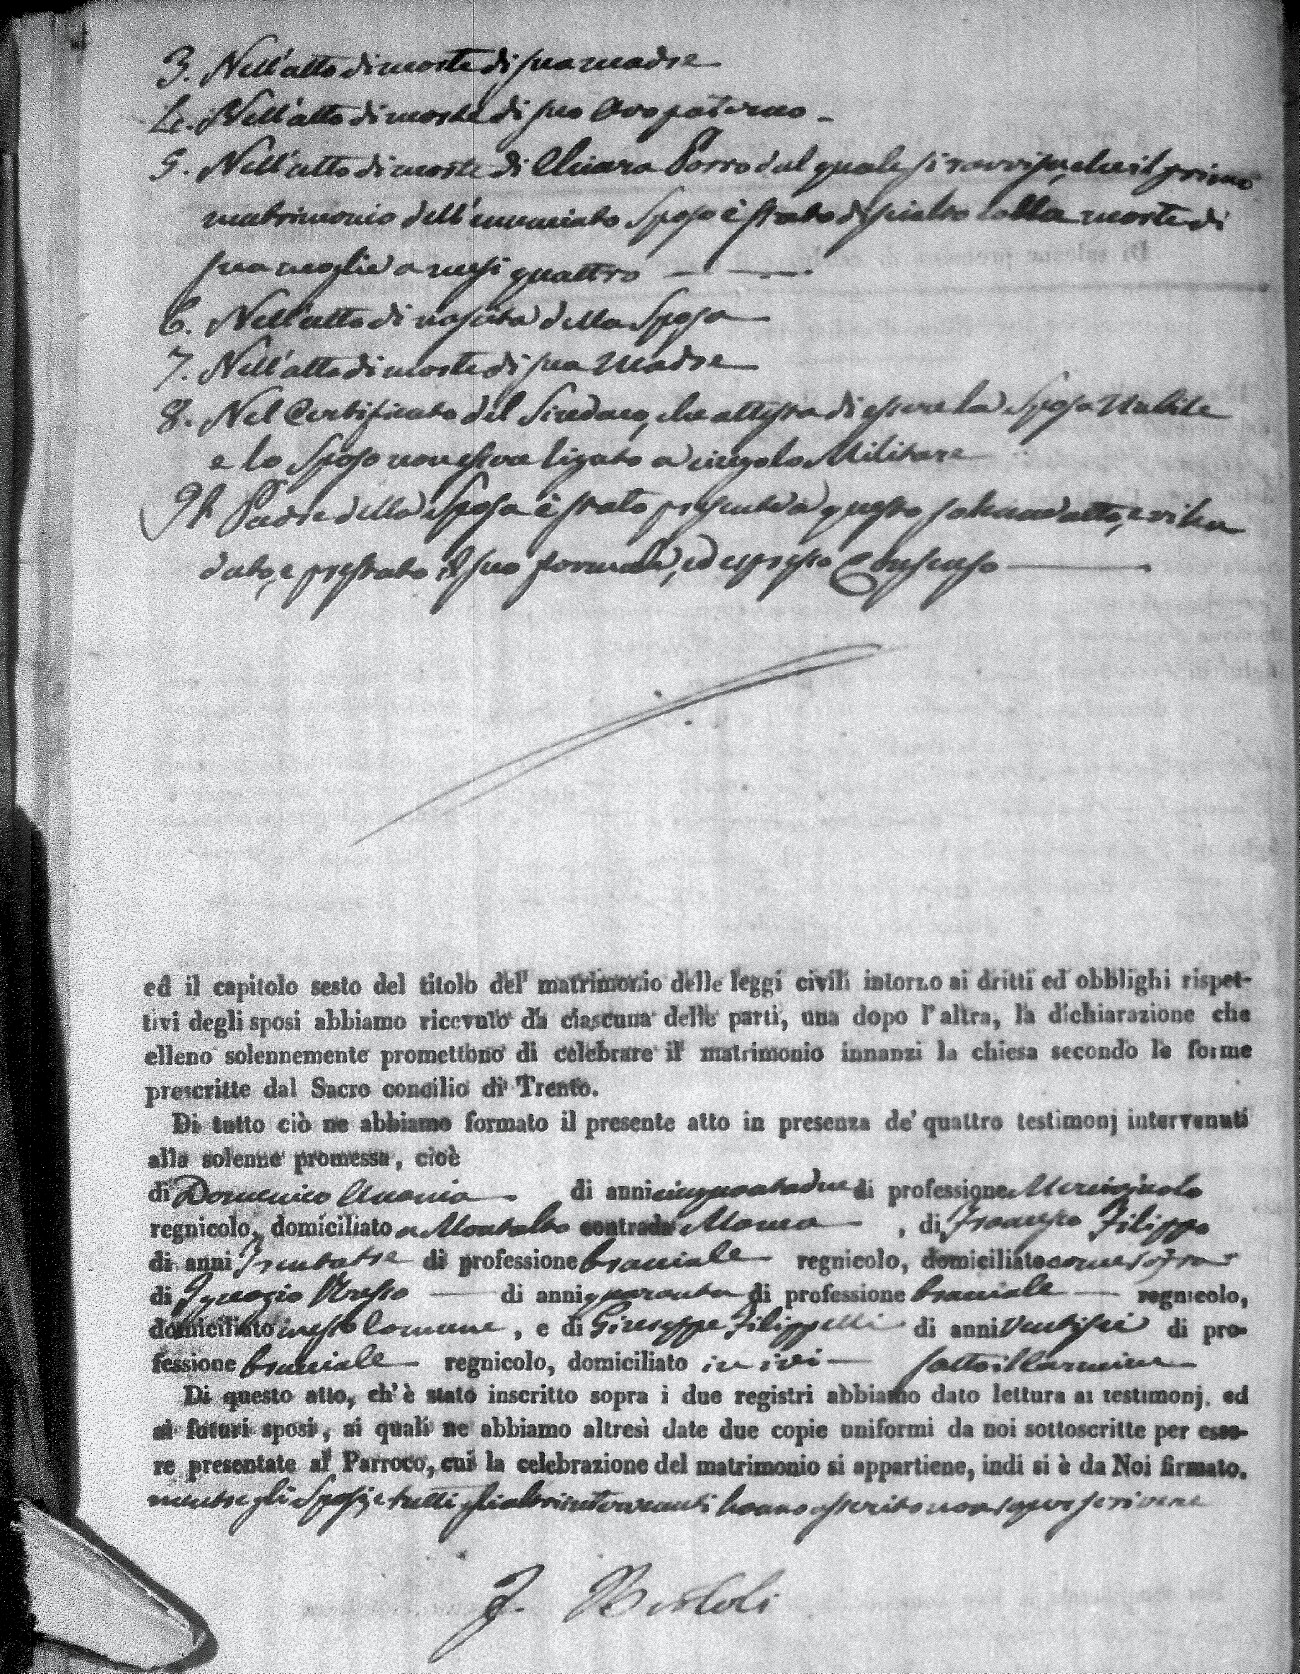 3. Nell'atto di morte di sua madre
4. Nell'atto di morte di suo Avo paterno
5. Nell'atto di morte di Chiara Porro dal quale si ravvisa, che il primo
matrimonio dell'enunciato Sposo è stato disciolto colla morte di
sua moglie a mesi quattro
6. Nell'atto di nascita della Sposa
7. Nell'atto di morte di sua Madre
8. Nel Certificato del Sindaco, che attesta di essere la Sposa Nubile
e lo Sposo non esser ligato a cingolo Militare
9. Il Padre della Sposa è stato presente a questo solenne atto, e vi ha
dato, e prestato il suo formale, ed espresso Consenso
ed il capitolo sesto del titolo del matrimonio delle leggi civili intorno ai dritti ed obblighi rispet-
tivi degli sposi abbiamo ricevuto da ciascuna delle parti, una dopo l'altra, la dichiarazione che
elleno solennemente promettono di celebrare il matrimonio innanzi la chiesa secondo le forme
prescritte dal Sacro concilio di Trento.
Di tutto ciò ne abbiamo formato il presente atto in presenza de' quattro testimonj intervenuti
alla solenne promessa, cioè
di Domenico Anania di anni cinquantadue di professione
regnicolo, domiciliato a Montalto contrada , di Francesco Filippo
di anni Trentatre di professione bracciale regnicolo, domiciliato come sopra
di Ignazio Russo di anni quaranta di professione bracciale regnicolo,
domiciliato in esso Comune, e di Giuseppe Filippelli di anni Ventisei di pro-
fessione bracciale regnicolo, domiciliato in ivi sotto il Carmine
Di questo atto, ch'è stato inscritto sopra i due registri abbiamo dato lettura ai testimonj, ed
ai futuri sposi, ai quali ne abbiamo altresì date due copie uniformi da noi sottoscritte per esse-
re presentate al Parroco, cui la celebrazione del matrimonio si appartiene, indi si è da Noi firmato.
mentre gli Sposi, e tutti gli altri intervenuti hanno asserito non saper scrivere